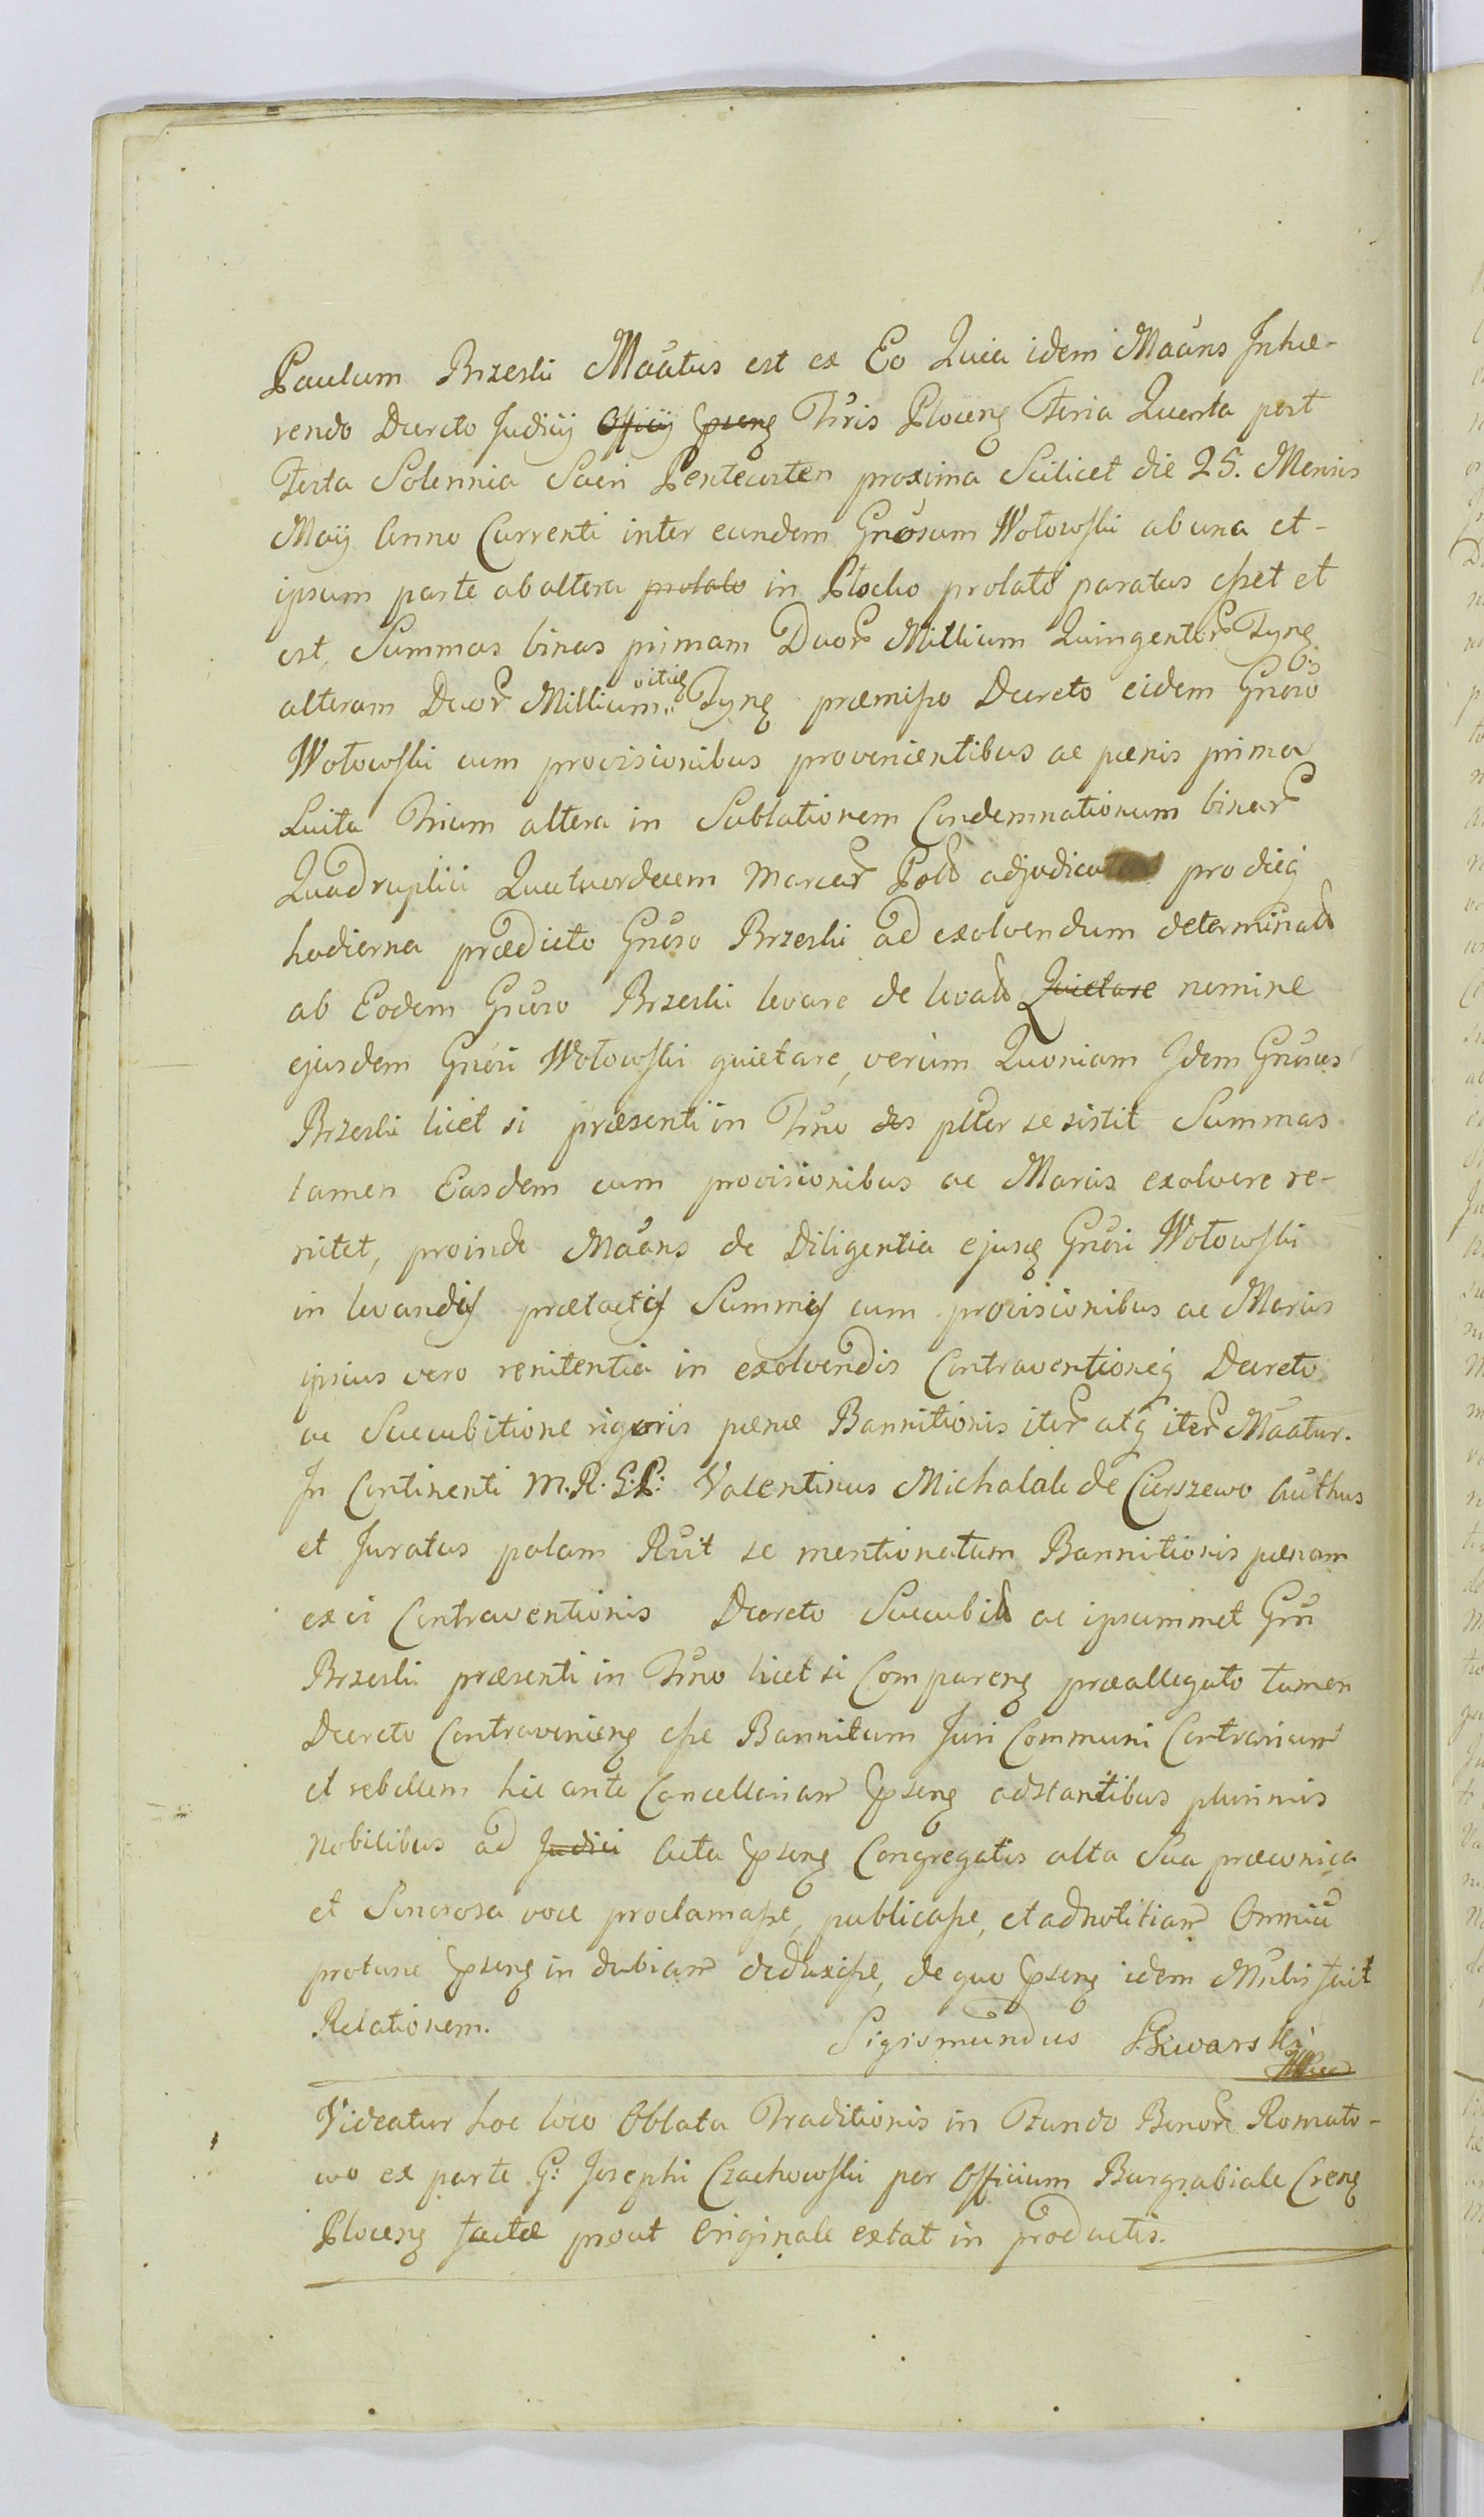 Paulum Brzeski Maātus est ex Eo Quia idem Maāns Inhæ-
rendo Decreto Judicij Officij pseng Tr̄ris Plocens Feria Quarta post
Festa Solennia Sacri Pentecosten proxima Scilicet die 25. Mensis
Maij Anno Currenti inter eundem Gnōsum Wołowski ab una et-
ipsum parte ab altera prolato in Płocko prolato paratus esset et
est, Summas binas primam Duor Millium Quingentor Tyn
alteram Duor Millium Tyn præmisso Decreto eidem Gnoso
Wołowski cum provisionibus provenientibus ac pœnis prima
Luita Trium altera in Sublationem Condemnationum binar
Quadruplici Quatuordecem Marcar Pol adjudica pro dieq
hodierna prædicto Gnoso Brzeski ad exolvendum determinat
ab Eodem Gnoso Brzeski levare de levat Quietare nomine
ejusdem Gnosi Wołowski quietare, verùm Quoniam Idem Gnosus
Brzeski licet si præsenti in Trno pltter se sistit Summas
tamen Easdem cum provisionibus ac Marcis exolvere re-
nitet, proinde Maāns de Diligentia ejusq Gnosi Wołowski
in levandis prætactis Summis cum provisionibus ac Marcis
ipsius vero renitentia in exolvendis Contraventioneq Decreto
ac Succubitione rigoris pœnæ Bannitionis iter atq iter Maatur.
In Continenti M.R.G.P: Valentinus Michalak de Cierszewo Authus
et Juratus palam Rūit se mentionatam Bannitionis pœnam
ex vi Contraventionis Decreto Succubit ac ipsummet Gn
Brzeski præsenti in Trno licet si Comparens præallegato tamen
Decreto Contraveniens esse Bannitum Juri Communi Contrarium
et rebellem hic ante Cancellariam pseng adstantibus plurimis
Nobilibus ad Judici Acta pseng Congregatis alta Sua præconica
et Sonorosa voce proclamasse, publicasse, et ad notitiam Omniū
protunc pseng in dubiam deduxisse, de quo pseng idem Mnlis fecit
Relationem.
Sigismundus Skwarski
Videatur hoc loco Oblata Traditionis in Fundo Bonor Romato-
wo ex parte G: Josephi Czachowski per Officium Burgrabiale Crens
Plocens factæ prout Originale extat in productis.